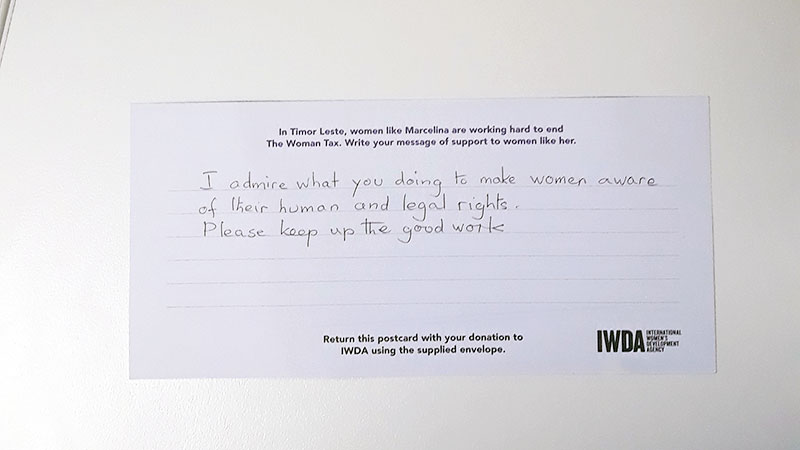 In Timor Leste, women like Marcelina are working hard to end
The Woman Tax. Write your message of support to women like her.
I admire what you doing to make women aware
of their human and legal rights.
Please keep up the good work
Return this postcard with your donation to
IWDA using the supplied envelope.
IWDA
INTERNATIONAL
WOMEN'S
DEVELOPMENT
AGENCY